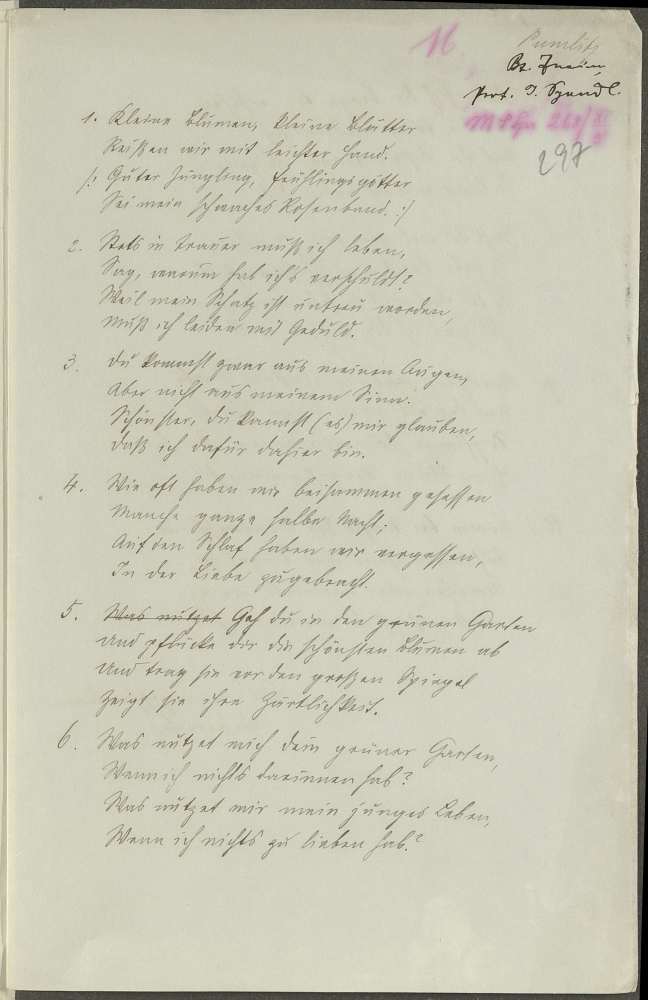 16
Bz. Znaim,
Prof. J. Spandl.
297
1. Kleine Blumen, kleine Blätter
Reißen wir mit leichter Hand.
/: Guter Jüngling, Frühlingsgötter
Sei mein schwaches Rosenband. :/
2. Stets in Trauer muß ich leben,
Sag, warum hab ich's verschuldt?
Weil mein Schatz ist untreu worden,
Muß ich leiden mit Geduld.
3. Du kommst zwar aus meinen Augen,
Aber nicht aus meinem Sinn.
Schönster, du kannst (es) mir glauben,
Daß ich dafür dahier bin.
4. Wie oft haben wir beisammen gesessen
Manche ganze halbe Nacht;
Auf den Schlaf haben wir vergessen,
In der Liebe zugebracht.
5. Was nützet Geh du in den grünen Garten
Und pflücke dir die schönsten Blumen ab
Und trag sie vor den großen Spiegel
Zeigt sie ihre Zärtlichkeit.
6. Was nützet mich dein grüner Garten,
Wenn ich nichts darinnen hab?
Was nützet mir mein junges Leben,
Wenn ich nichts zu lieben hab?